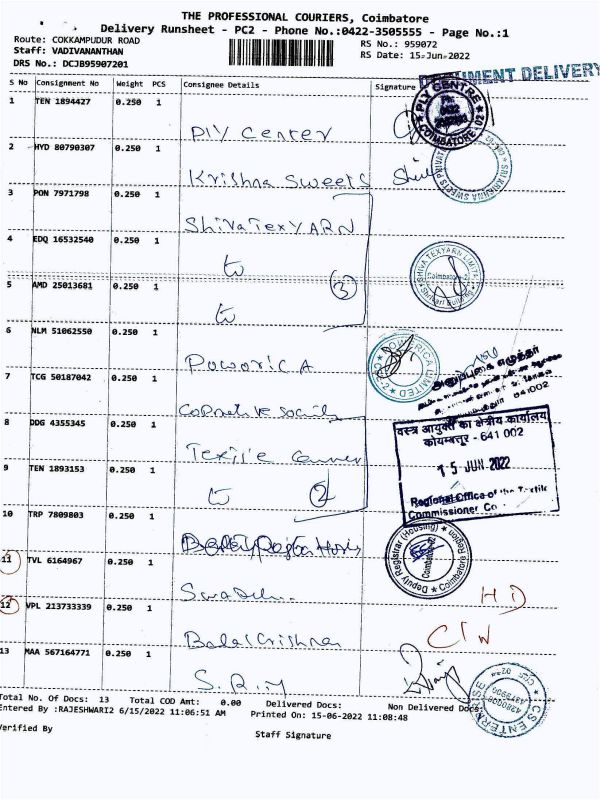 THE PROFESSIONAL COURIERS, Coimbatore
Delivery Runsheet - PC2 - Phone No.:0422-3505555 - Page No.:1
Route: COKKAMPUDUR ROAD
RS No.: 959072
Staff: VADIVANANTHAN
RS Date: 15-Jun-2022
DRS No.: DCJB95907201
DOCUMENT DELIVERY
S No Consignment No Weight PCS Consignee Details Signature
1 TEN 1894427 0.250 1
PLY CENTRE
COIMBATORE. 02
Ply Center
2 HYD 80790307 0.250 1
SRI KRISHNA SWEETS PRIVATE
Krishna Sweets
3 PON 7971798 0.250 1
Shiva Tex YARN
4 EDQ 16532540 0.250 1
SHIVA TEXYARN LIMITED
Coimbatore-2
3
5 AMD 25013681 0.250 1
6 NLM 51062550 0.250 1
LIMITED
7 TCG 50187042 0.250 1
641002
8 DDG 4355345 0.250 1
वस्त्र आयुक्त का क्षेत्रीय कार्यालय
कोयम्बत्तूर - 641 002
15 JUN 2022
Regional Office of the Textile
Commissioner
9 TEN 1893153 0.250 1
2
10 TRP 7809803 0.250 1
Deputy Registrar (Housing)
Coimbatore Region
11 TVL 6164967 0.250 1
HD
12 VPL 213733339 0.250 1
C/W
Balakrishnan
13 MAA 567164771 0.250 1
S.R.M
CS ENTERPRISE
Total No. Of Docs: 13 Total COD Amt: 0.00 Delivered Docs: Non Delivered Docs:
Entered By :RAJESHWARI2 6/15/2022 11:06:51 AM Printed On: 15-06-2022 11:08:48
Verified By
Staff Signature